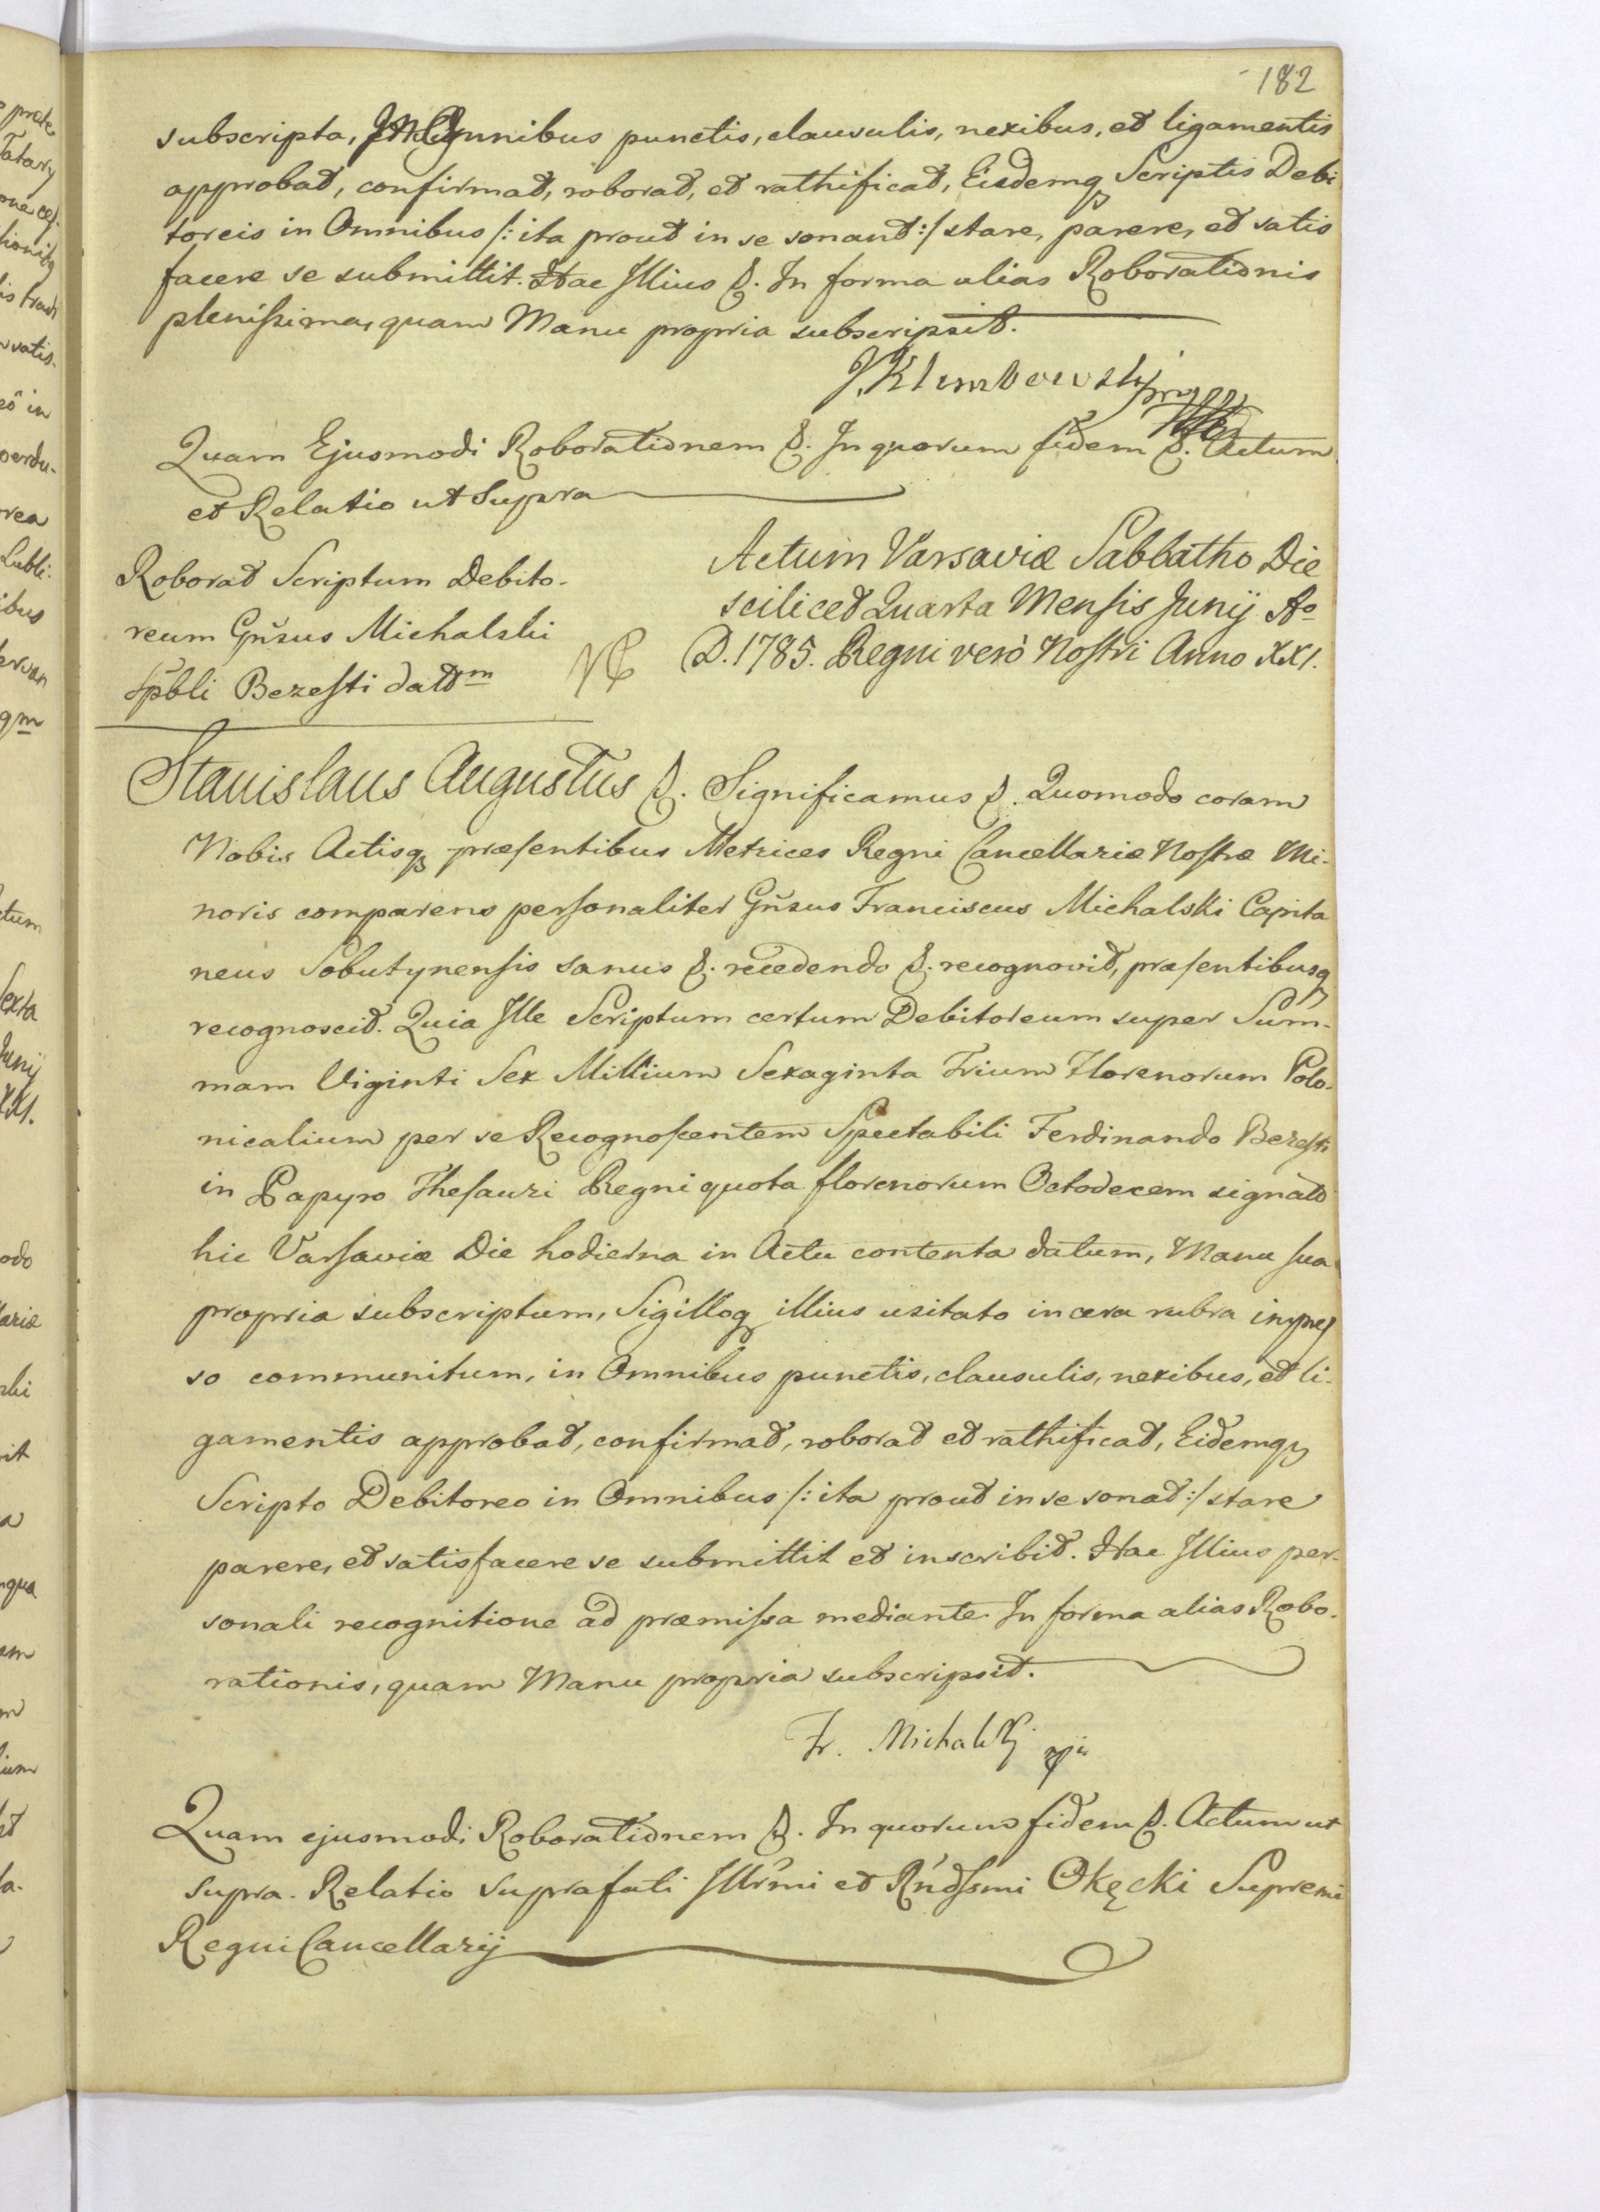 182
subscripta, In Omnibus punctis, clausulis, nexibus, et ligamentis
approbat, confirmat, roborat, et rathificat, Eisdemq Scriptis Debi
toreis in Omnibus /: ita prout in se sonant :/ stare, parere, et satis
facere se submittit. Hac Illius &. In forma alias Roborationis
plenissima, quam Manu propria subscripsit.
J. Klembowski mpp
Quam Ejusmodi Roborationem &. In quorum fidem &. Actum
et Relatio ut Supra
Roborat Scriptum Debito-
reum Gnsus Michalski
Spbli Bezesti dat m
Actum Varsaviæ Sabbatho Die
scilicet Quarta Mensis Junij Ao
D. 1785. Regni verò Nostri Anno XXI.
Stanislaus Augustus &. Significamus &. Quomodo coram
Nobis Actisq præsentibus Metrices Regni Cancellariæ Nostræ Mi-
noris comparens personaliter Gnsus Franciscus Michalski Capita
neus Sobutynensis sanus &. recedendo &. recognovit, præsentibusq
recognoscit. Quia Ille Scriptum certum Debitoreum super Sum-
mam Viginti Sex Millium Sexaginta Trium Florenorum Polo-
nicalium per se Recognoscentem Spectabili Ferdinando Bezesti
in Papyro Thesauri Regni quota florenorum Octodecem signato
hic Varsaviæ Die hodierna in Actu contenta datum, Manu sua
propria subscriptum, Sigilloq illius usitato in cera rubra impres
so communitum, in Omnibus punctis, clausulis, nexibus, et li-
gamentis approbat, confirmat, roborat et rathificat, Eidemq
Scripto Debitoreo in Omnibus /: ita prout in se sonat :/ stare
parere, et satisfacere se submittit et inscribit. Hac Illius per-
sonali recognitione ad præmissa mediante. In forma alias Robo-
rationis, quam Manu propria subscripsit.
Fr. Michalski mp
Quam ejusmodi Roborationem &. In quorum fidem &. Actum ut
supra. Relatio suprafati Illrmi et Rndssmi Okęcki Supremi
Regni Cancellarij